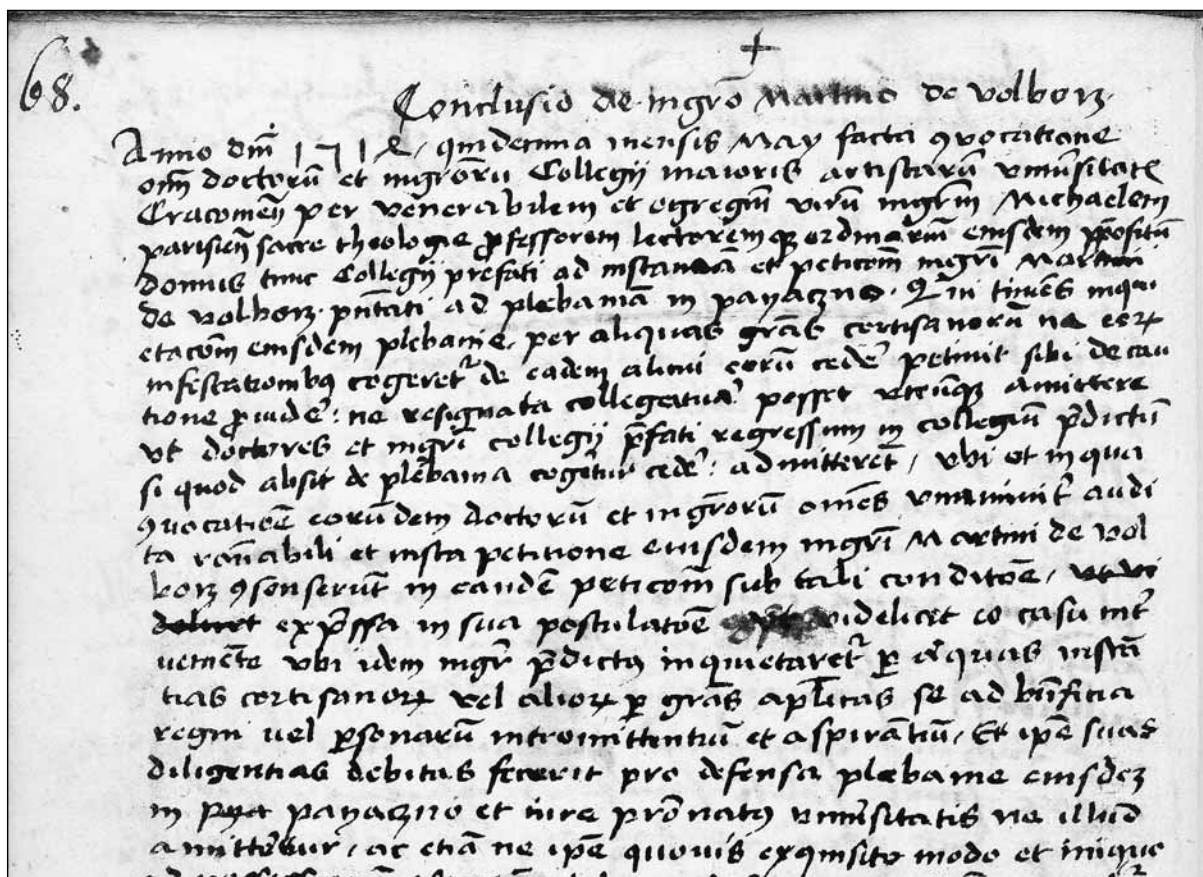 68.
+
Conclusio de mgro Martino de volborz
Anno dm̄ 1512, quidecima mensis May facta ꝯvocatiane
om̄ doctorū et mgrorū Collegÿ maioris artistarū vniūsitatꝭ
Cracomen̄ per venerabilem et egregiū virum mgrm̄ Michaelem
parisien̄ sacre theologie ꝓfessorem lectoremqꝫ ordinariū eiusdem p̄positū
domus tunc Collegÿ prefati ad instantiā et peticōm mgri Martini
de volborz pn̄tati ad plebaniā in payączno. Qui timēs inqui
etacōm eiusdem plebanie, per aliquas grās cortisanorū ne eorꝝ
infestationibꝰ cogeretʳ de eadem alicui eorū cedeʳ petiuit sibi de cau
tione ꝓuideʳ: ne resignata collegiatuā posset vtcūqꝫ amittere
vt doctores et mgrī collegÿ p̄fati regressum in collegiū p̄dictū
si quod absit de plebania cogetur cedeʳ: admitterēt, vbi et in qua
ꝯvocatiōe eorūdem doctorū et mgrorū omēs vnanimitʳ audi
ta rōnabili et iusta petitione eiusdem mgrī Martini de vol
borz ꝯsenserūt in eandē peticōm sub tali conditōe,
expssa in sua postulatōe videlicet eo casu intʳ
ueniēte vbi idem mgr̄ p̄dictꝰ inquietaretʳ ꝑ aliquas instā
tias cortisanorꝝ vel aliorꝝ ꝑ grās aplicas se ad bn̄ficia
regni uel ꝑsonarū intromittentiū et aspirātiū, Et ipē suas
diligentias debitas fecerit pro defensa plebanie eiusdeꝫ
in payączno et iure pronatꝰ vniūsitatis ne illud
amitteretur, ac etiā ne ipē quovis exquisito modo et iniquo